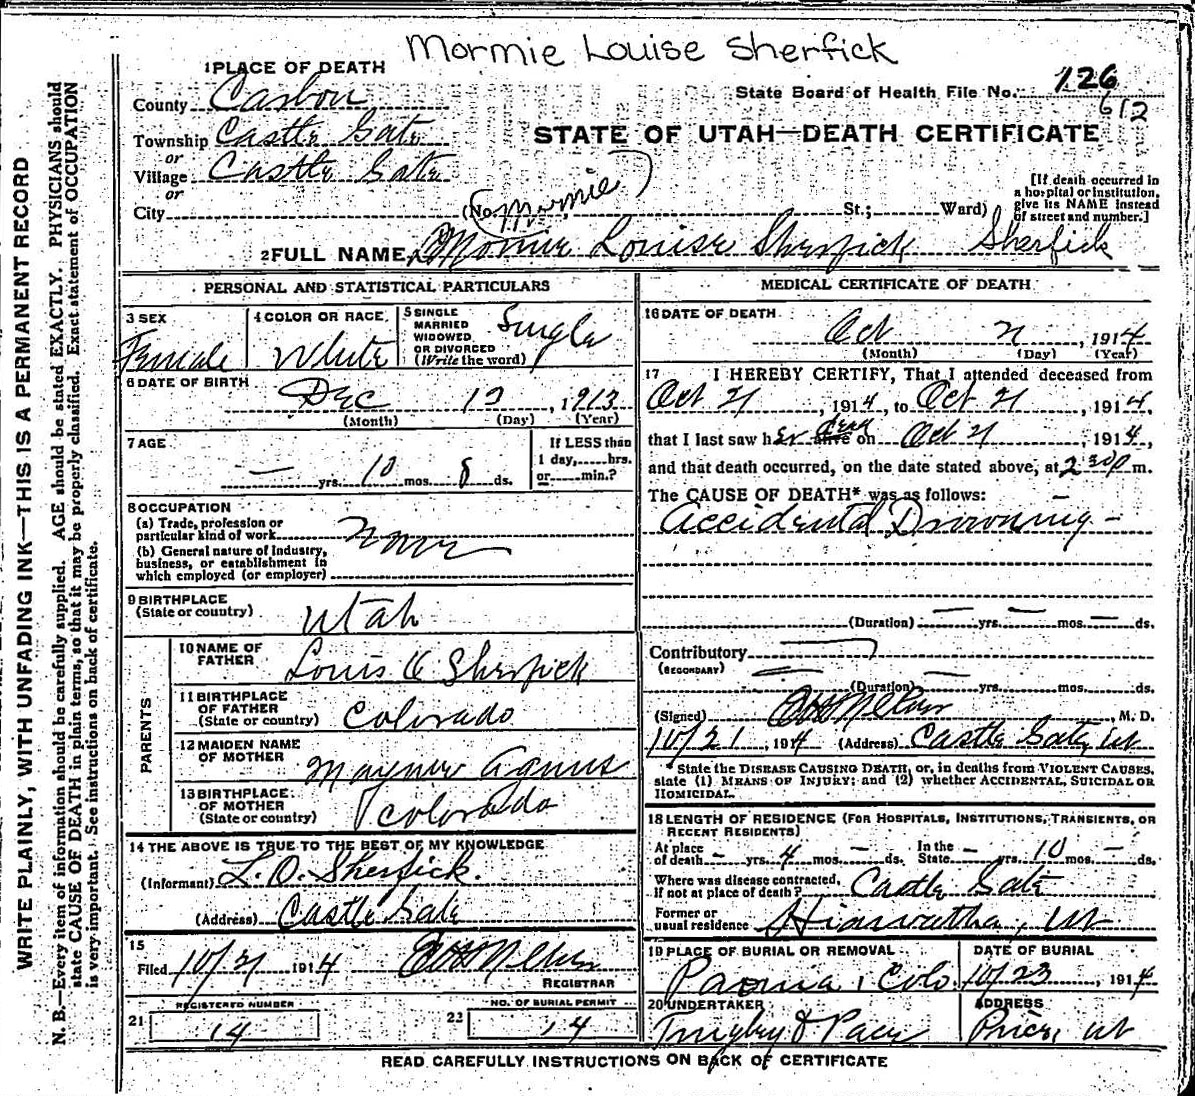 Mormie Louise Sherfick
1 PLACE OF DEATH
State Board of Health File No. 126
612
County Carbon
STATE OF UTAH—DEATH CERTIFICATE
Township Castle Gate
or
Village Castle Gate
or
[If death occurred in a hospital or institution, give its NAME instead of street and number.]
City (No. St.; Ward)
Mormie
2 FULL NAME Mormie Louise Sherfick Sherfick
PERSONAL AND STATISTICAL PARTICULARS
3 SEX
Female
4 COLOR OR RACE
White
5 SINGLE
MARRIED
WIDOWED
OR DIVORCED
(Write the word)
Single
6 DATE OF BIRTH
Dec 1913
(Month) (Day) (Year)
7 AGE
— yrs. 10 mos. 8 ds.
If LESS than
1 day, hrs.
or min.?
8 OCCUPATION
(a) Trade, profession or
particular kind of work
(b) General nature of industry,
business, or establishment in
which employed (or employer)
9 BIRTHPLACE
(State or country) Utah
PARENTS
10 NAME OF
FATHER Louis O Sherfick
11 BIRTHPLACE
OF FATHER
(State or country) Colorado
12 MAIDEN NAME
OF MOTHER Agnus
13 BIRTHPLACE
OF MOTHER
(State or country) Colorado
14 THE ABOVE IS TRUE TO THE BEST OF MY KNOWLEDGE
(Informant) L. O. Sherfick.
(Address) Castle Gate
15
Filed 10/21 1914
REGISTRAR
REGISTERED NUMBER
21 14
NO. OF BURIAL PERMIT
23 14
MEDICAL CERTIFICATE OF DEATH
16 DATE OF DEATH
Oct 21, 1914
(Month) (Day) (Year)
17 I HEREBY CERTIFY, That I attended deceased from
Oct 21, 1914, to Oct 21, 1914,
that I last saw her alive dead on Oct 21, 1914,
and that death occurred, on the date stated above, at 2 30 p m.
The CAUSE OF DEATH* was as follows:
Accidental Drowning —
(Duration) — yrs. — mos. — ds.
Contributory
(SECONDARY)
(Duration) yrs. mos. ds.
(Signed) , M. D.
10/21, 1914 (Address) Castle Gate, Ut
*State the DISEASE CAUSING DEATH, or, in deaths from VIOLENT CAUSES,
state (1) MEANS OF INJURY; and (2) whether ACCIDENTAL, SUICIDAL OR
HOMICIDAL.
18 LENGTH OF RESIDENCE (FOR HOSPITALS, INSTITUTIONS, TRANSIENTS, OR
RECENT RESIDENTS)
At place of death — yrs. 4 mos. — ds. In the State — yrs. 10 mos. — ds.
Where was disease contracted,
if not at place of death? Castle Gate
Former or
usual residence Hiawatha, Ut
19 PLACE OF BURIAL OR REMOVAL
Paonia, Colo.
DATE OF BURIAL
10/23, 1914
20 UNDERTAKER
ADDRESS
Price, Ut
READ CAREFULLY INSTRUCTIONS ON BACK OF CERTIFICATE
WRITE PLAINLY, WITH UNFADING INK—THIS IS A PERMANENT RECORD
N. B.—Every item of information should be carefully supplied. AGE should be stated EXACTLY. PHYSICIANS should
state CAUSE OF DEATH in plain terms, so that it may be properly classified. Exact statement of OCCUPATION
is very important. See instructions on back of certificate.